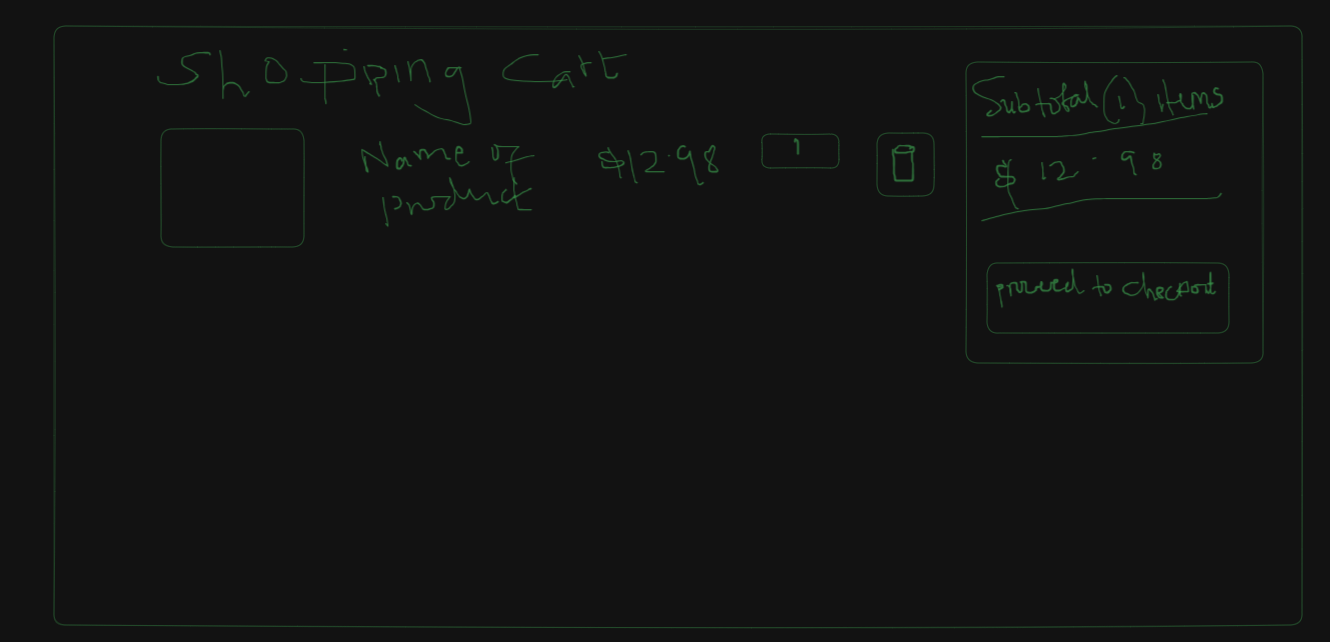 Shopping Cart
Name of
product
$12.98
1
Subtotal (1) items
$ 12.98
proceed to checkout